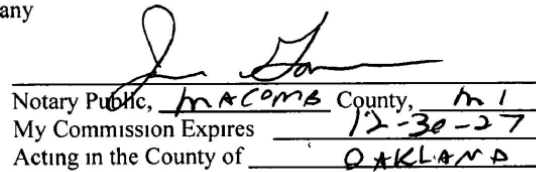 any
Notary Public, MACOMB County, MI
My Commission Expires 12-30-27
Acting in the County of OAKLAND